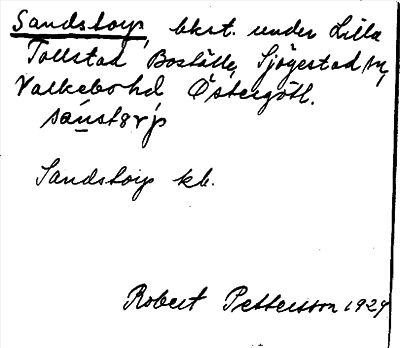 Sandstorp, bkst. under Lilla
Tollstad Boställe, Sjögestad sn,
Valkebo hd Östergötl.
sánstǝrp
Sandstorp kb.
Robert Pettersson 1929